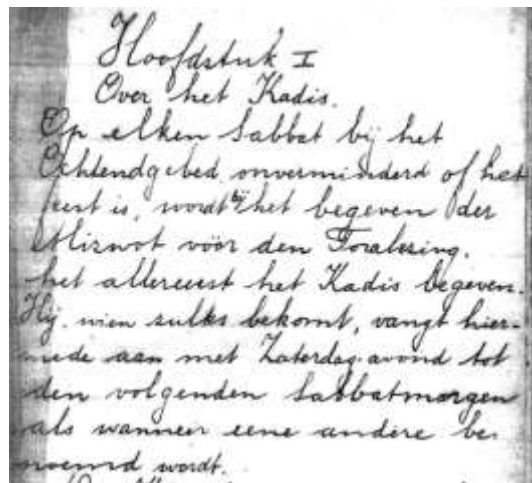 Hoofdstuk I
Over het Kadis.
Op elken Sabbat bij het
Ochtendgebed, onverminderd of het
feest is, wordt bij het begeven der
Mizwot vóór den Toralezing.
het allereerst het Kadis begeven.
Hij, wien zulks bekomt, vangt hier-
mede aan met Zaterdag-avond tot
den volgenden Sabbatmorgen
als wanneer eene andere be-
noemd wordt.